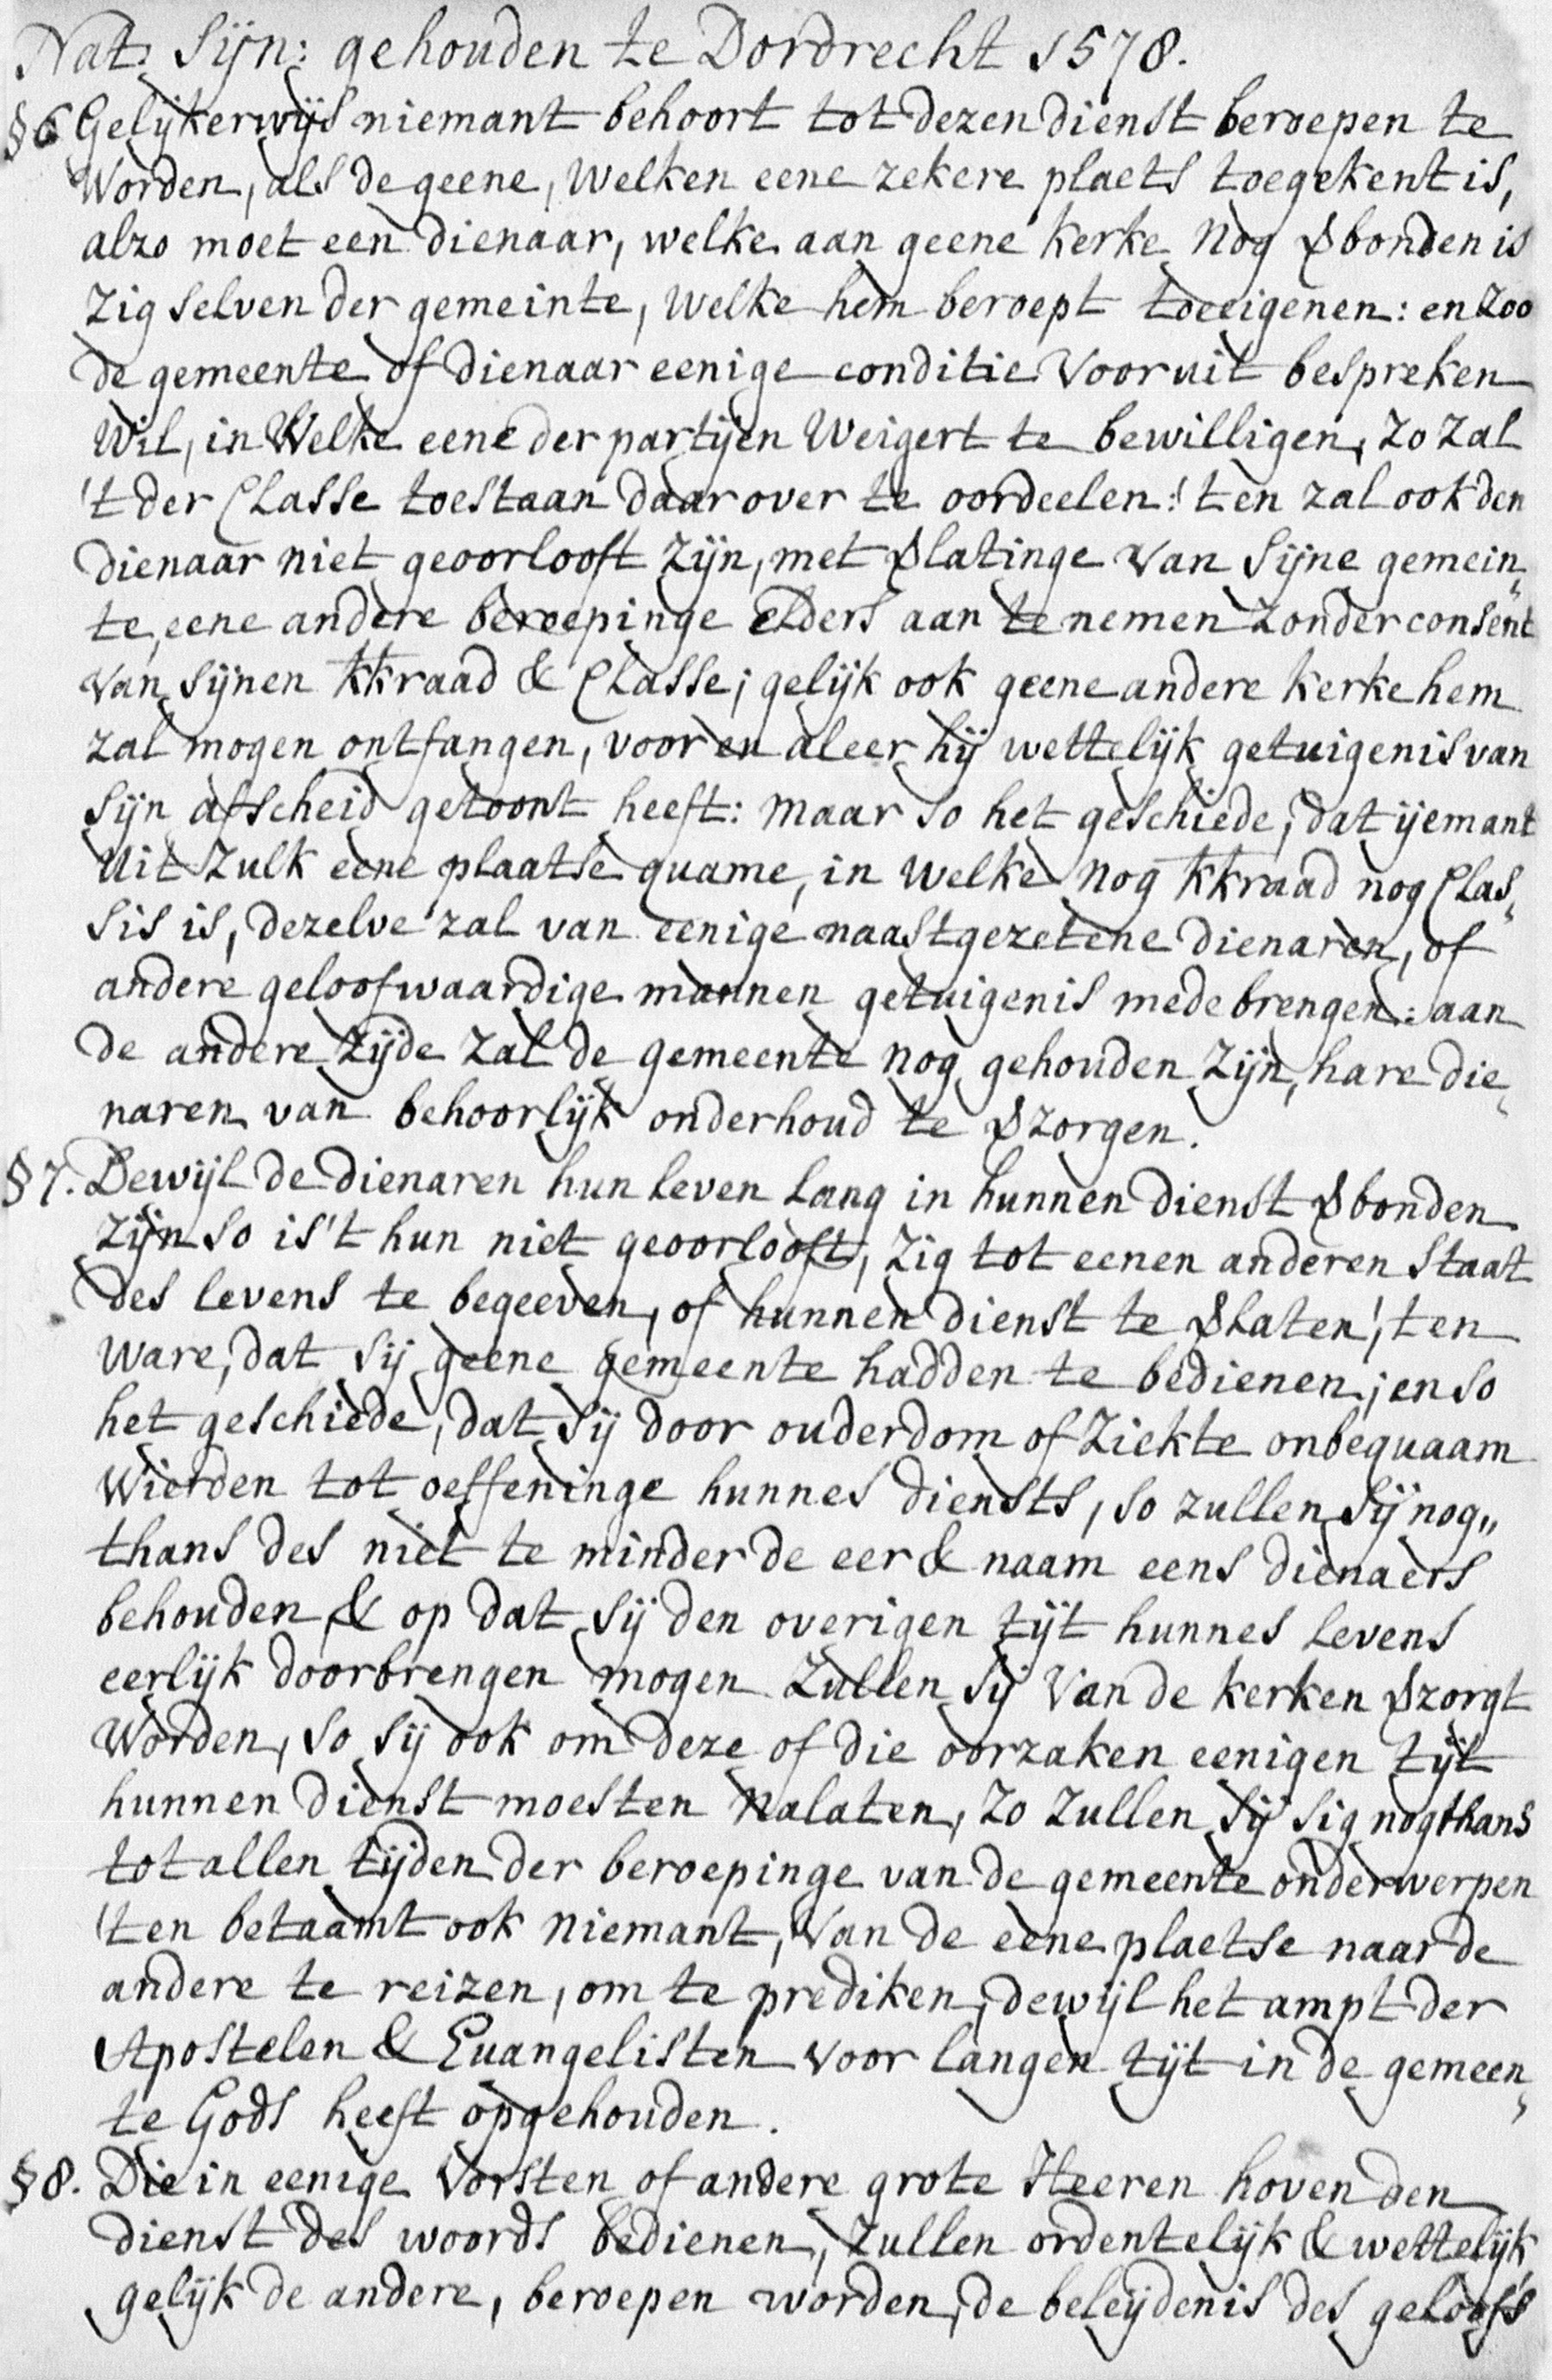 Nat: Sijn: gehouden te Dordrecht 1578.
§6 Gelijkerwijs niemant behoort tot dezen dienst beroepen te
Worden, als de geene, welken eene zekere plaets toegekent is,
alzo moet een dienaar, welke aan geene kerke nog vbonden is
zig selven der gemeinte, welke hem beroept toeeigenen: en zoo
de gemeente of dienaar eenige conditie vooruit bespreken
wil, in Welke eene der partijen Weigert te bewilligen, zo zal
't der Classe toestaan daar over te oordeelen: 't en zal ook den
dienaar niet geoorlooft zijn, met vlatinge van sijne gemein„
te, eene andere beroepinge elders aan te nemen zonder consent
van sijnen kkraad & Classe; gelijk ook geene andere kerke hem
zal mogen ontfangen, voor en aleer hij wettelijk getuigenis van
sijn afscheid getoont heeft: maar so het geschiede, dat ijemant
uit zulk eene plaatse quame, in welke nog kkraad nog Clas„
sis is, dezelve zal van eenige naastgezetene dienaren, of
andere geloofwaardige mannen getuigenis mede brengen: aan
de andere zijde zal de gemeente nog gehouden zijn, hare die„
naren van behoorlijk onderhoud te vzorgen.
§7. Dewijl de dienaren hun leven lang in hunnen dienst vbonden
zijn so is 't hun niet geoorlooft, zig tot eenen anderen staat
des levens te begeeven, of hunnen dienst te vlaten, 't en
ware, dat sij geene gemeente hadden te bedienen; en so
het geschiede, dat sij door ouderdom of ziekte onbequaam
wierden tot oeffeninge hunnes diensts, so zullen sij nog„
thans des niet te minder de eer & naam eens dienaers
behouden & op dat sij den overigen tijt hunnes levens
eerlijk doorbrengen mogen zullen sij van de kerken vzorgt
worden, so sij ook om deze of die oorzaken eenigen tijt
hunnen dienst moesten nalaten, zo zullen sij sig nogthans
tot allen tijden der beroepinge van de gemeente onderwerpen
't en betaamt ook niemant, van de eene plaetse naar de
andere te reizen, om te prediken, dewijl het ampt der
Apostelen & Euangelisten voor langen tijt in de gemeen„
te Gods heeft opgehouden.
§8. Die in eenige Vorsten of andere grote Heeren hoven den
dienst des woords bedienen, zullen ordentelijk & wettelijk
gelijk de andere, beroepen worden, de beleijdenis des geloofs